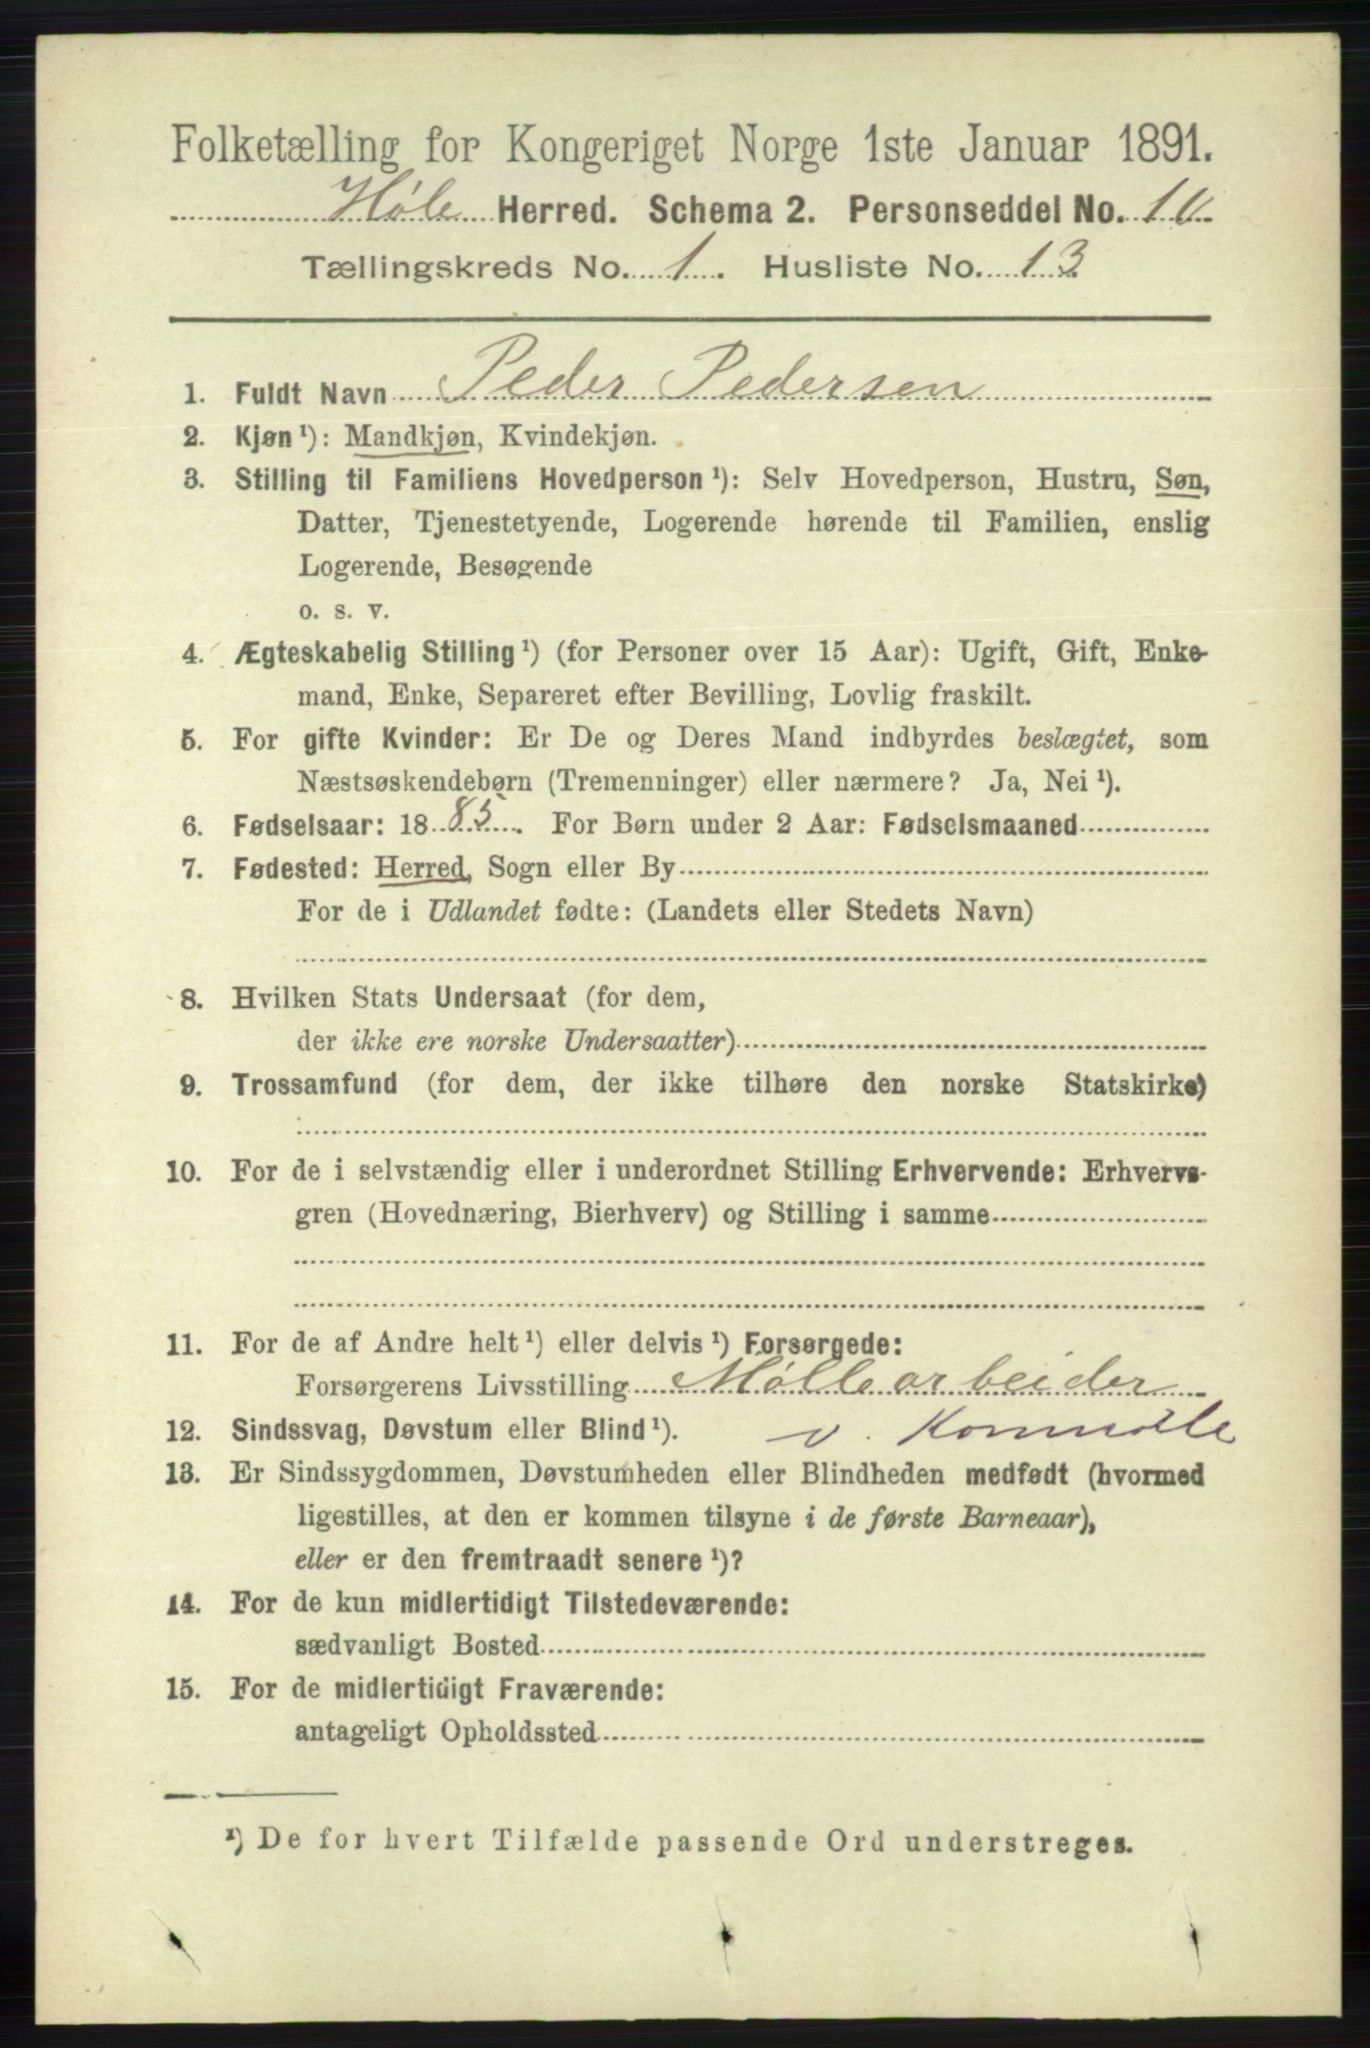 Folketælling for Kongeriget Norge 1ste Januar 1891.
Høle Herred. Schema 2. Personseddel No. 10
Tællingskreds No. 1. Husliste No. 13
1. Fuldt Navn Peder Pedersen
2. Kjøn ¹): Mandkjøn, Kvindekjøn.
3. Stilling til Familiens Hovedperson ¹): Selv Hovedperson, Hustru, Søn,
Datter, Tjenestetyende, Logerende hørende til Familien, enslig
Logerende, Besøgende
o. s. v.
4. Ægteskabelig Stilling ¹) (for Personer over 15 Aar): Ugift, Gift, Enke-
mand, Enke, Separeret efter Bevilling, Lovlig fraskilt.
5. For gifte Kvinder: Er De og Deres Mand indbyrdes beslægtet, som
Næstsøskendebørn (Tremenninger) eller nærmere? Ja, Nei ¹).
6. Fødselsaar: 1885. For Børn under 2 Aar: Fødselsmaaned
7. Fødested: Herred, Sogn eller By
For de i Udlandet fødte: (Landets eller Stedets Navn)
8. Hvilken Stats Undersaat (for dem,
der ikke ere norske Undersaatter)
9. Trossamfund (for dem, der ikke tilhøre den norske Statskirke)
10. For de i selvstændig eller i underordnet Stilling Erhvervende: Erhvervs-
gren (Hovednæring, Bierhverv) og Stilling i samme
11. For de af Andre helt ¹) eller delvis ¹) Forsørgede:
Forsørgerens Livsstilling Møllearbeider
12. Sindssvag, Døvstum eller Blind ¹). v. Kornmølle
13. Er Sindssygdommen, Døvstumheden eller Blindheden medfødt (hvormed
ligestilles, at den er kommen tilsyne i de første Barneaar),
eller er den fremtraadt senere ¹)?
14. For de kun midlertidigt Tilstedeværende:
sædvanligt Bosted
15. For de midlertidigt Fraværende:
antageligt Opholdssted
¹) De for hvert Tilfælde passende Ord understreges.